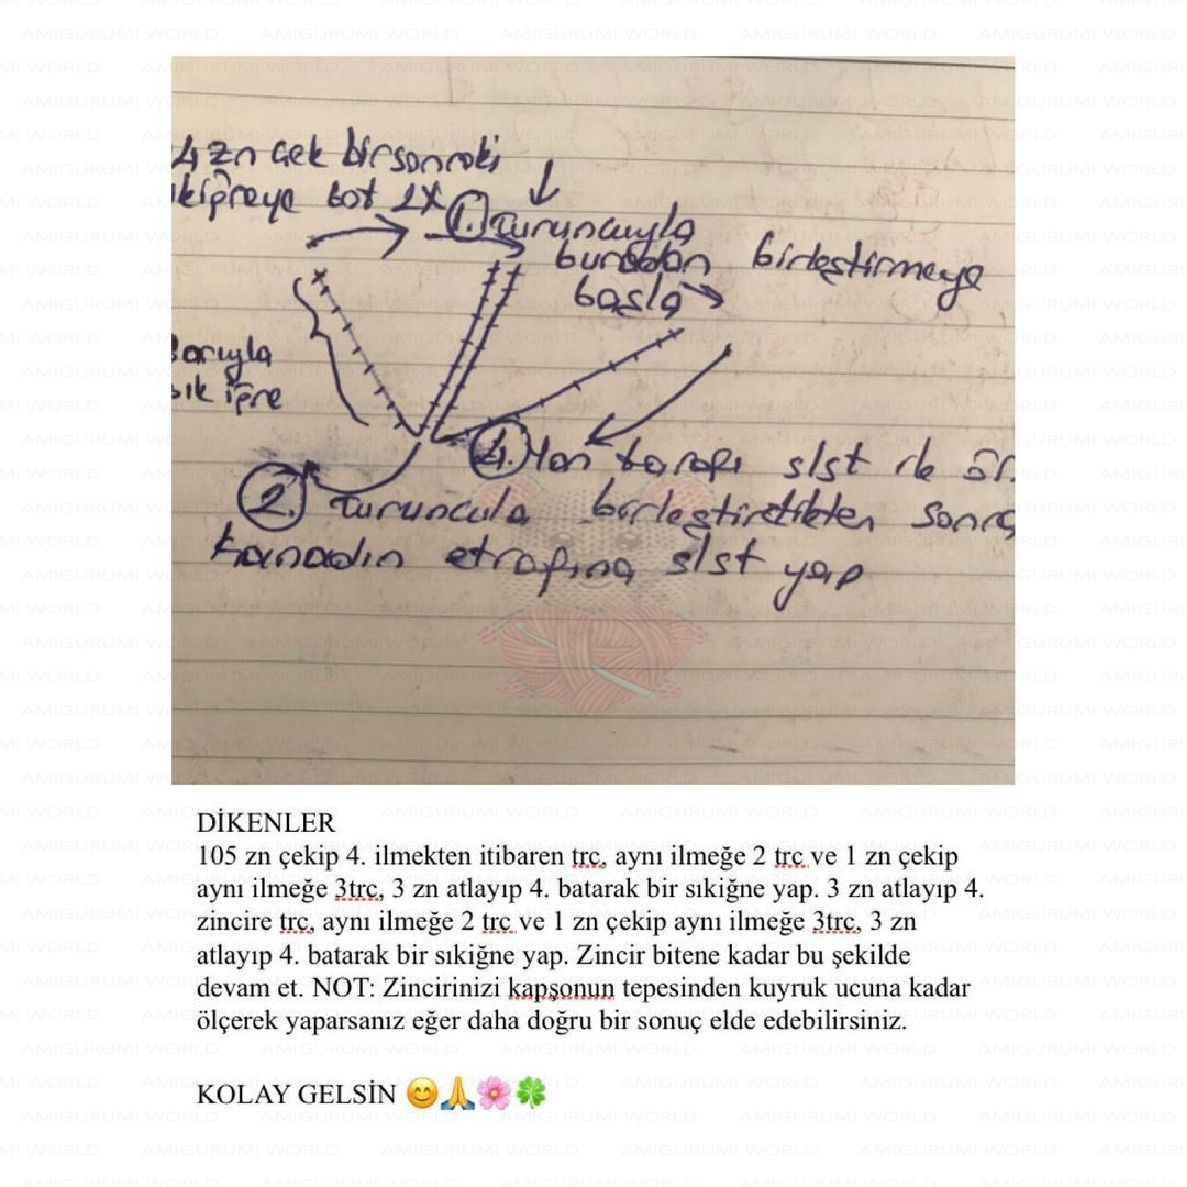 4 zn çek bir sonraki
ikiğneye bat 1X
1. Turuncuyla
buradan birleştirmeye
başla
Sarıyla
sık iğne
4. Yan tarafı slst ile ör
2. Turuncula birleştirdikten sonra
kanadın etrafına slst yap
DİKENLER
105 zn çekip 4. ilmekten itibaren trc, aynı ilmeğe 2 trc ve 1 zn çekip
aynı ilmeğe 3trc, 3 zn atlayıp 4. batarak bir sıkiğne yap. 3 zn atlayıp 4.
zincire trc, aynı ilmeğe 2 trc ve 1 zn çekip aynı ilmeğe 3trc, 3 zn
atlayıp 4. batarak bir sıkiğne yap. Zincir bitene kadar bu şekilde
devam et. NOT: Zincirinizi kapşonun tepesinden kuyruk ucuna kadar
ölçerek yaparsanız eğer daha doğru bir sonuç elde edebilirsiniz.
KOLAY GELSİN 😊🙏🌸🍀
AMIGURUMI WORLD